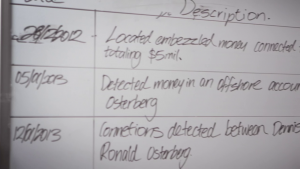 Description.
2012 Located embezzled money connected
totaling $5mil.
05/01/2013 Detected money in an offshore accoun
Osterberg
12/01/2013 Connetions detected between Dennis
Ronald Osterberg